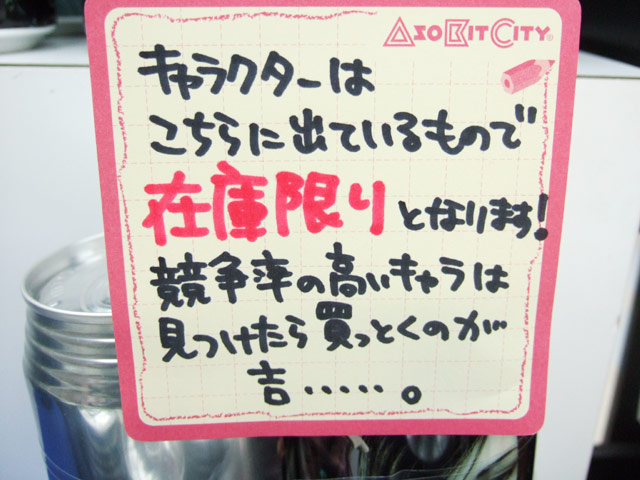 ASOBITCITY
キャラクターは
こちらに出ているもので
在庫限りとなります!
競争率の高いキャラは
見つけたら買っとくのが
吉.....。